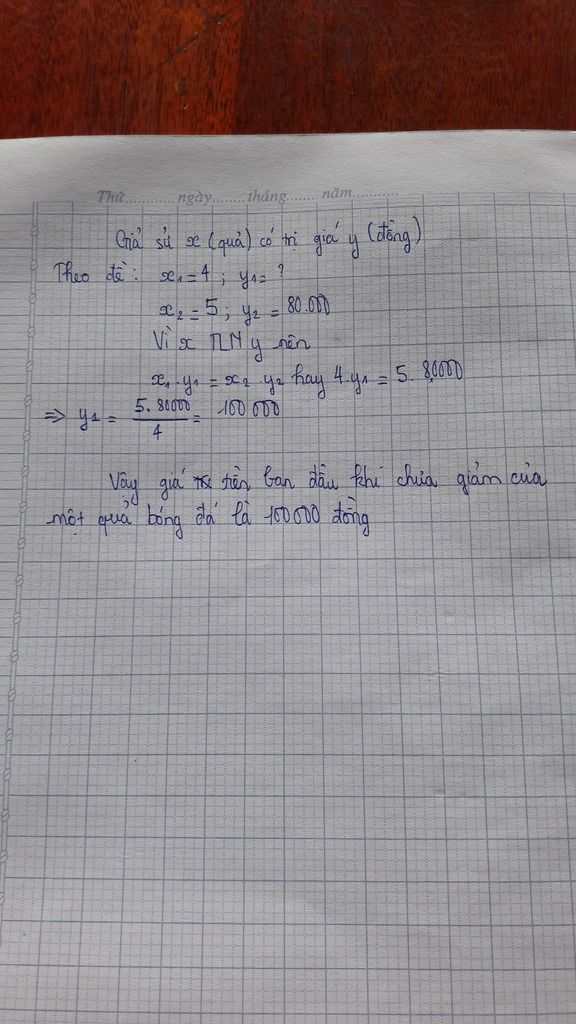 Thứ............ngày........tháng.......năm...........
Giả sử x (quả) có trị giá y (đồng)
Theo đề: x₁ = 4 ; y₁ = ?
x₂ = 5 ; y₂ = 80.000
Vì x TLN y nên
x₁ . y₁ = x₂ . y₂ hay 4.y₁ = 5. 80000
=> y₁ = 5. 80000 / 4 = 100 000
Vậy giá tiền ban đầu khi chưa giảm của
một quả bóng đá là 100000 đồng